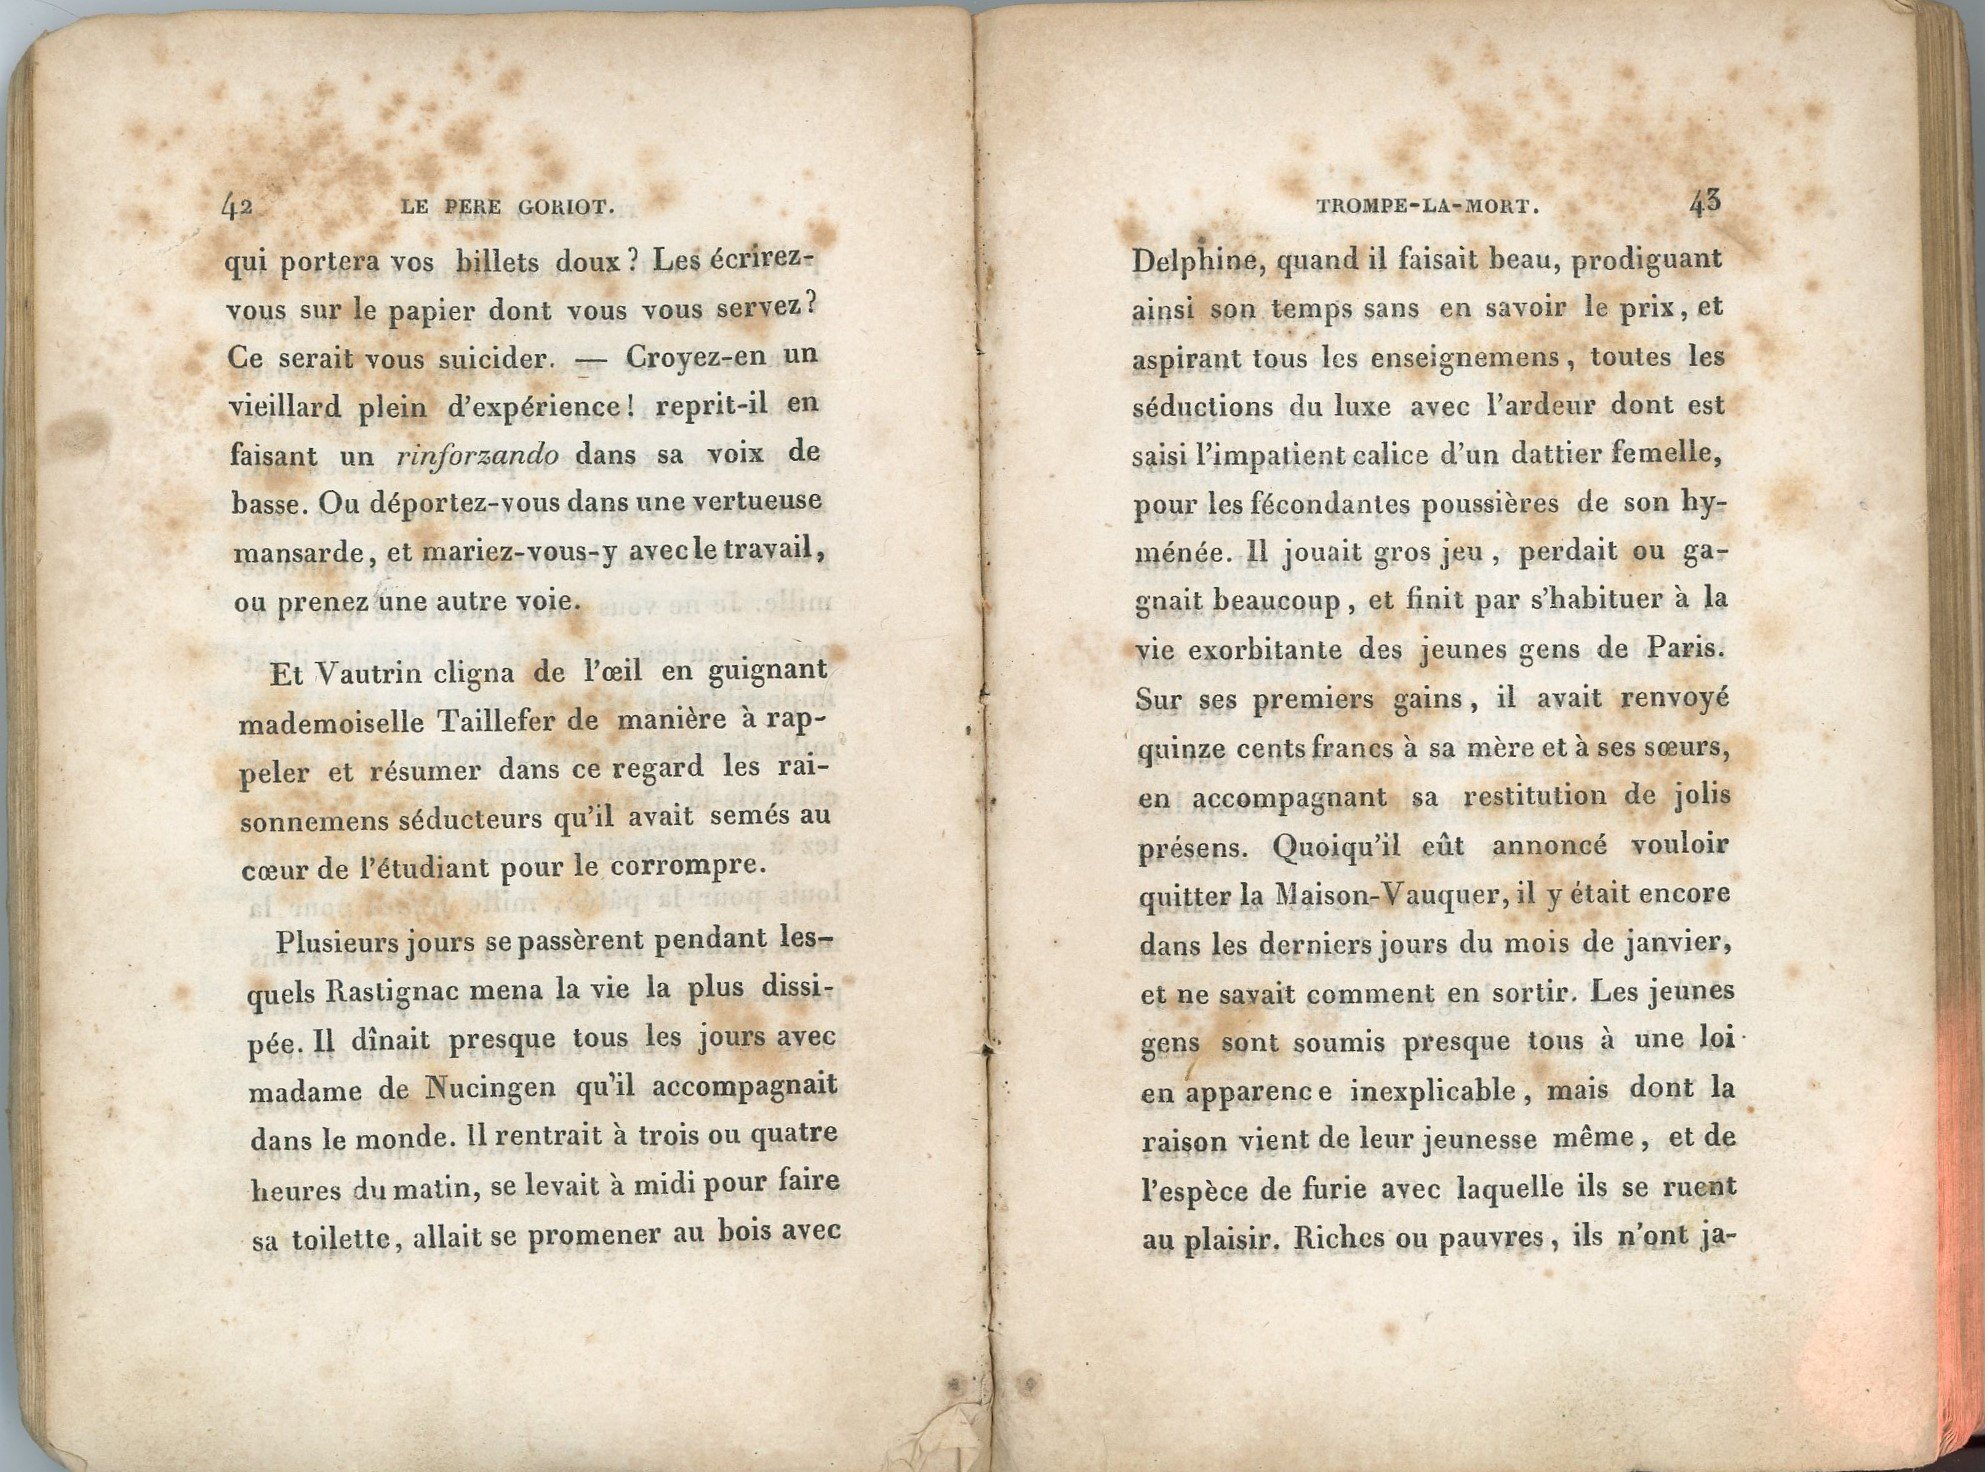 42 LE PERE GORIOT.
qui portera vos billets doux? Les écrirez-
vous sur le papier dont vous vous servez?
Ce serait vous suicider. — Croyez-en un
vieillard plein d'expérience! reprit-il en
faisant un rinforzando dans sa voix de
basse. Ou déportez-vous dans une vertueuse
mansarde, et mariez-vous-y avec le travail,
ou prenez une autre voie.
Et Vautrin cligna de l'œil en guignant
mademoiselle Taillefer de manière à rap-
peler et résumer dans ce regard les rai-
sonnemens séducteurs qu'il avait semés au
cœur de l'étudiant pour le corrompre.
Plusieurs jours se passèrent pendant les-
quels Rastignac mena la vie la plus dissi-
pée. Il dînait presque tous les jours avec
madame de Nucingen qu'il accompagnait
dans le monde. Il rentrait à trois ou quatre
heures du matin, se levait à midi pour faire
sa toilette, allait se promener au bois avec
TROMPE-LA-MORT. 43
Delphine, quand il faisait beau, prodiguant
ainsi son temps sans en savoir le prix, et
aspirant tous les enseignemens, toutes les
séductions du luxe avec l'ardeur dont est
saisi l'impatient calice d'un dattier femelle,
pour les fécondantes poussières de son hy-
ménée. Il jouait gros jeu, perdait ou ga-
gnait beaucoup, et finit par s'habituer à la
vie exorbitante des jeunes gens de Paris.
Sur ses premiers gains, il avait renvoyé
quinze cents francs à sa mère et à ses sœurs,
en accompagnant sa restitution de jolis
présens. Quoiqu'il eût annoncé vouloir
quitter la Maison-Vauquer, il y était encore
dans les derniers jours du mois de janvier,
et ne savait comment en sortir. Les jeunes
gens sont soumis presque tous à une loi
en apparence inexplicable, mais dont la
raison vient de leur jeunesse même, et de
l'espèce de furie avec laquelle ils se ruent
au plaisir. Riches ou pauvres, ils n'ont ja-